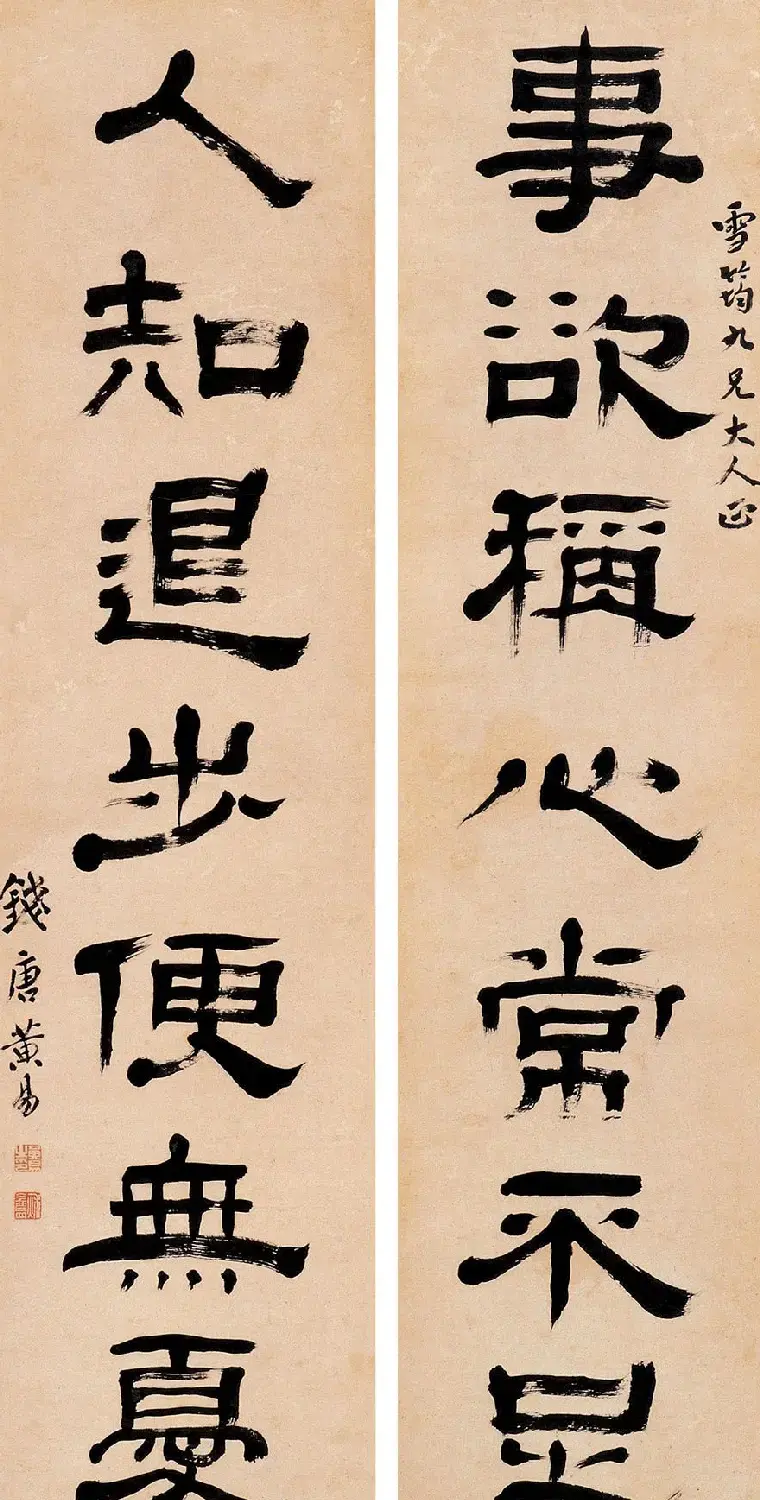 雪筠九兄大人正
事欲稱心常不足
人知退步便無憂
錢唐黃易